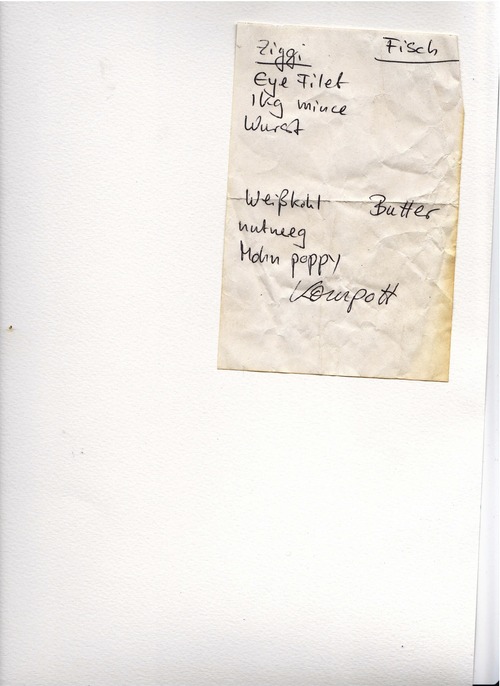 Ziggi Fisch
Eye Filet
1kg mince
Wurst
Weißkohl Butter
nutmeg
Mohn poppy
Kompott